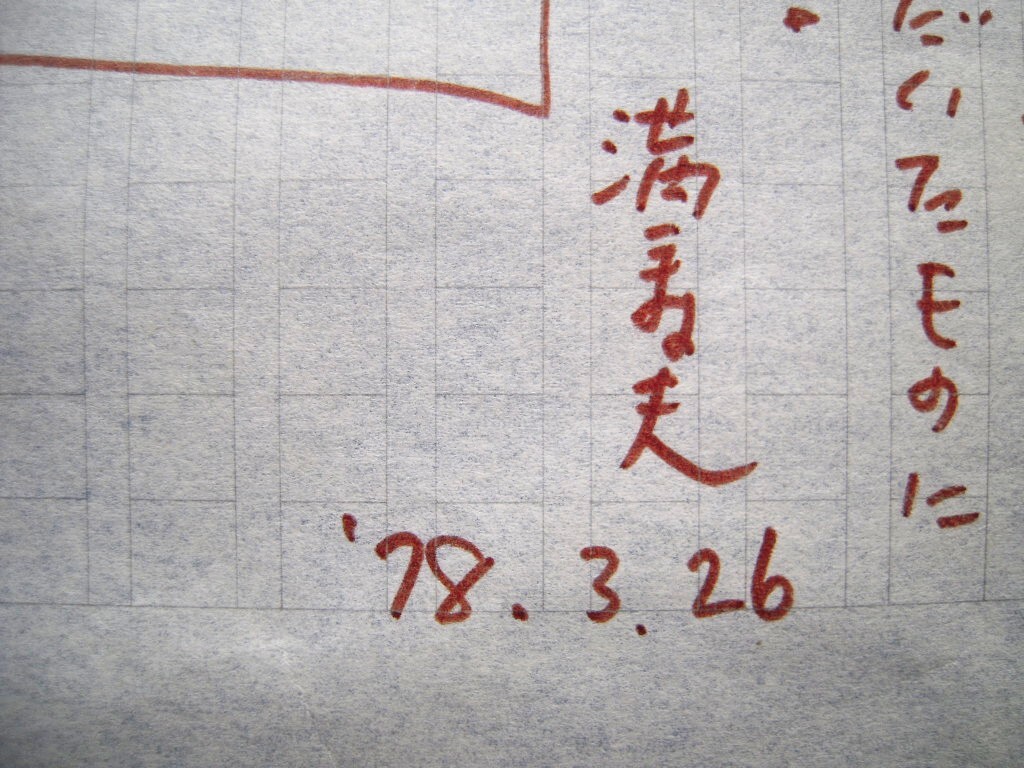 だいたものに
満寿夫
'78.3.26